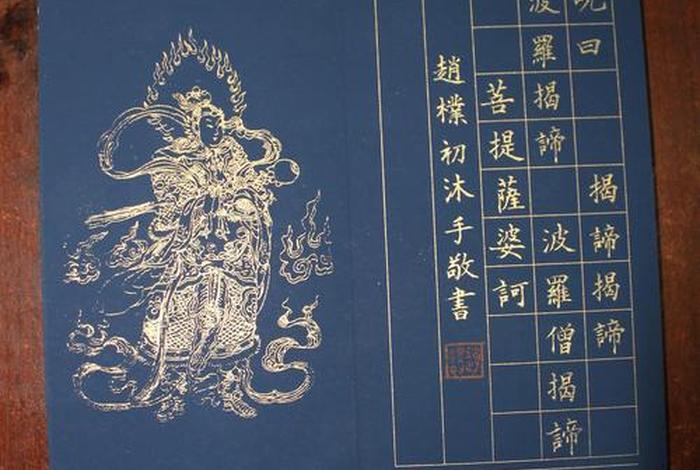 呪曰 揭諦揭諦
波羅揭諦 波羅僧揭諦
菩提薩婆訶
趙樸初沐手敬書